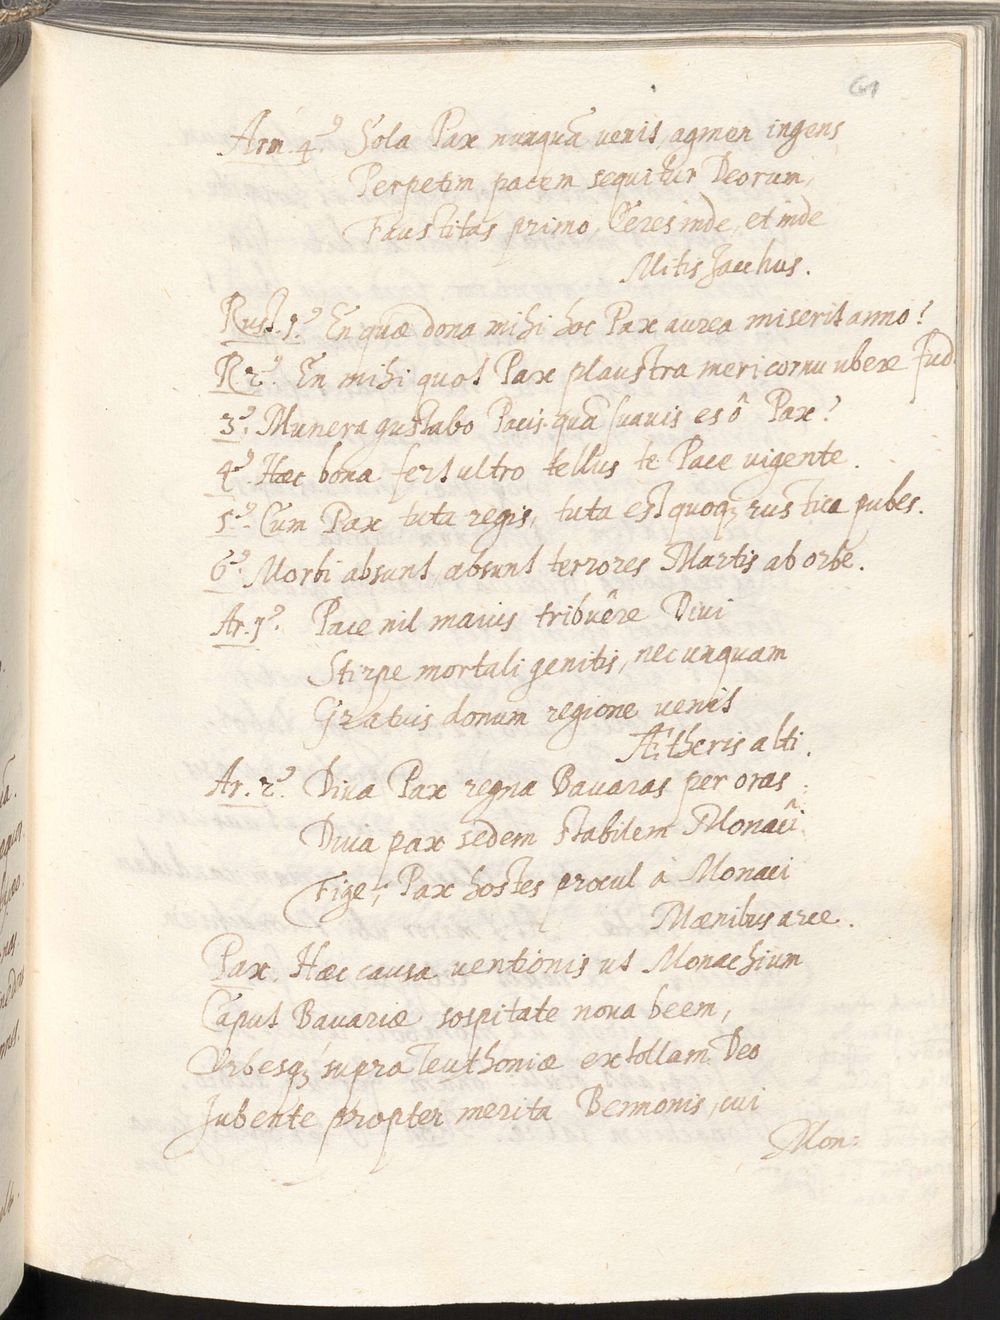 61
Arm. 4.⁹ Sola Pax nunquā venit, agmen ingens
Perpetim pacem sequitur Deorum,
Faustitas primo, Ceres inde, et inde
Mitis Jacchus.
Rust. 1.⁹ En quæ dona mihi hoc Pax aurea miserit anno!
R. 2.⁹ En mihi quot Pax plaustra meri cornu ubere fud.
3.⁹ Munera gustabo Pacis. quā suavis es ô Pax!
4.⁹ Hæc bona fert ultro tellus te Pace vigente.
5.⁹ Cum Pax tuta regis, tuta est quoqȝ rustica pubes.
6.⁹ Morbi absunt, absunt terrores Martis ab orbe.
Ar. 1.⁹ Pace nil maius tribuêre Divi
Stirpe mortali genitis, nec unquam
Gratius donum regione venit
Ætheris alti.
Ar. 2.⁹ Diva Pax regna Bavaras per oras,
Diva pax sedem stabilem Monacî
Fige; Pax hostes procul à Monaci
Mœnibus arce.
Pax. Hæc causa ventionis ut Monachium
Caput Bavariæ sospitate nova beem,
Urbesqȝ supra Teuthoniæ extollam. Deo
Jubente propter merita Bennonis, cui
Mon: